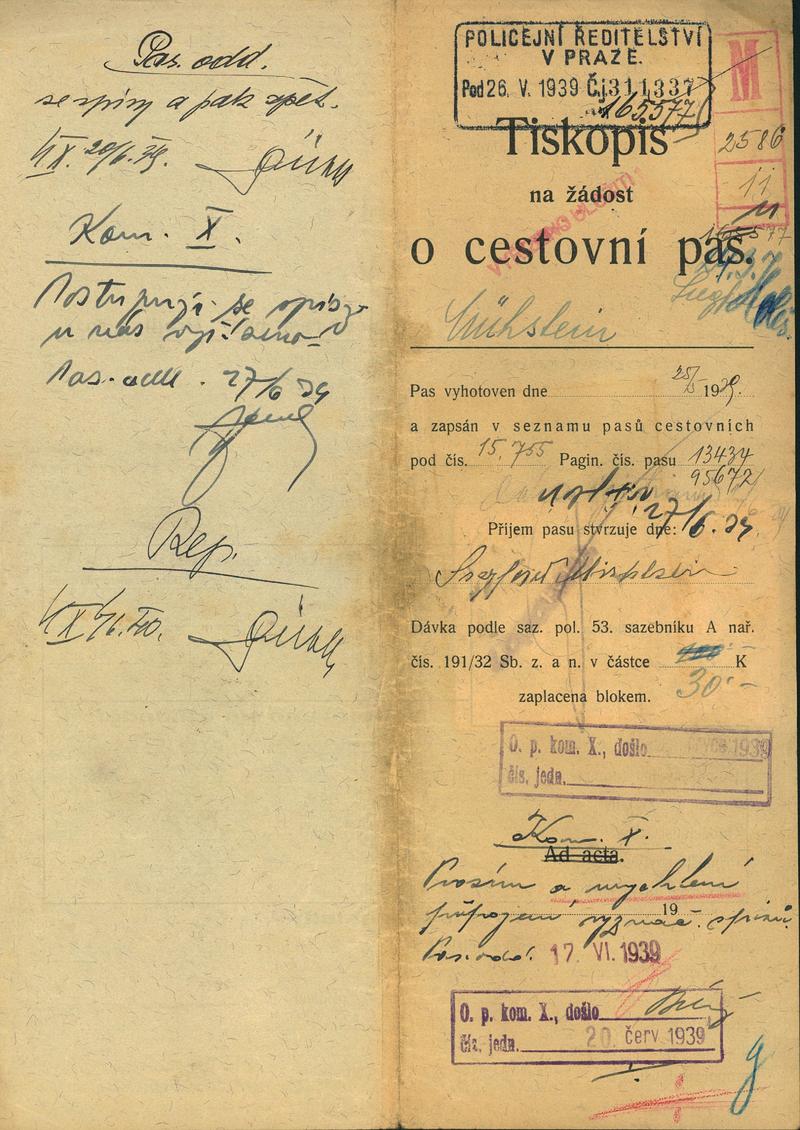 Pas. odd.
se spisy a pak zpět.
Kom. X.
Postupuji se spisy
u nás
Pas. odd. 27/6 39
Rep.
POLICEJNÍ ŘEDITELSTVÍ
V PRAZE.
Pod 26. V. 1939 Č.j. 311337
165577
M
2586
11
Tiskopis
na žádost
o cestovní pas.
165577
Mühstein
Pas vyhotoven dne 1939.
a zapsán v seznamu pasů cestovních
pod čís. 15.755 Pagin. čís. pasu 13434
95672
Příjem pasu stvrzuje dne: 27/6. 39
Dávka podle saz. pol. 53. sazebníku A nař.
čís. 191/32 Sb. z. a n. v částce K
30'-
zaplacena blokem.
O. p. kom. X., došlo 1939
čís. jedn.
Kom. X.
Ad acta.
Prosím o urychlené
připojení vyznač. spisů.
19
Pas. odd. 17. VI. 1939
O. p. kom. X., došlo
čís. jedn. 20. červ 1939